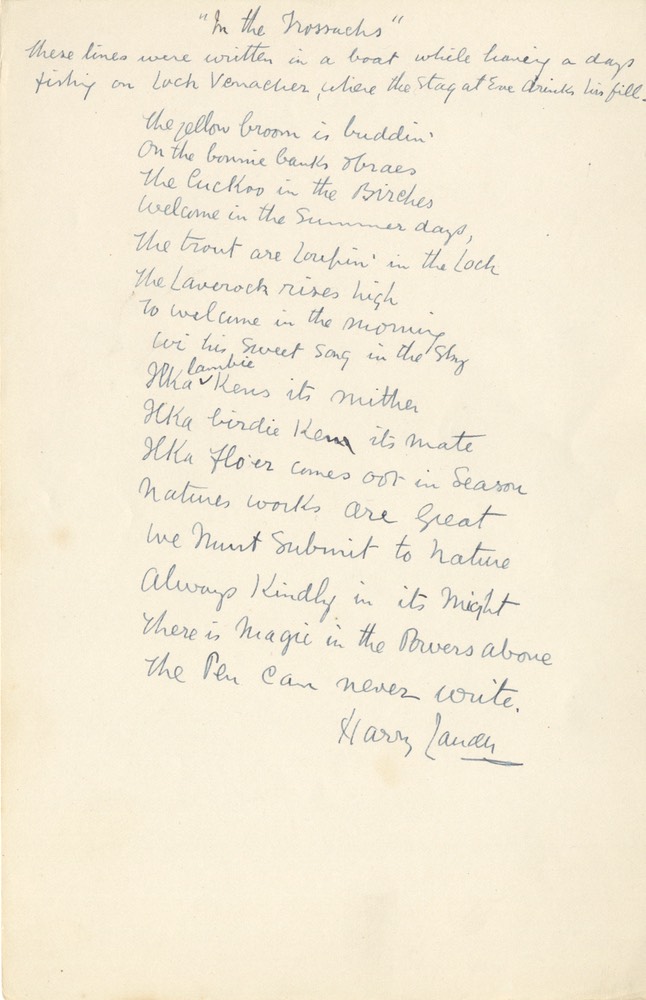 "In the Trossachs"
These lines were written in a boat while having a days
fishing on Loch Venacher, where the Stag at Eve drinks his fill.
The yellow broom is buddin'
On the bonnie banks & braes
The Cuckoo in the Birches
Welcome in the Summer days,
The trout are Loupin' in the Loch
The Laverock rises high
To welcome in the morning
wi his Sweet Song in the Sky
Ilka lambie Kens its mither
Ilka birdie Kens its mate
Ilka flo'er comes oot in Season
Natures works are Great
We Must Submit to Nature
Always Kindly in its Might
There is Magic in the Powers above
The Pen Can never write.
Harry Lauder